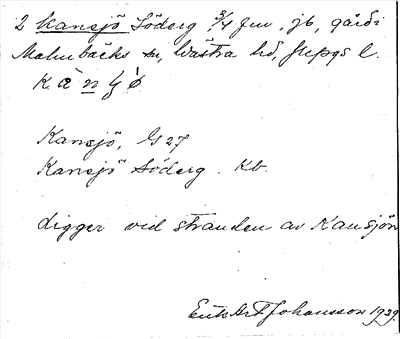 2 Kansjö Söderg. 3/4 jb, gård i
Malmbäcks sn, Västra hd, Jkpgs l.
Kansjö, G 27
Kansjö Söderg. Kb.
digger vid stranden av Kansjön
Johansson 1939.